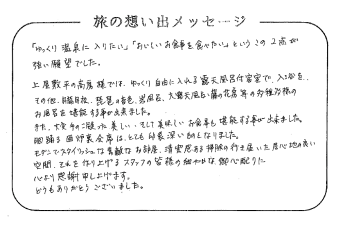 旅の想い出メッセージ
「ゆっくり温泉に入りたい」「おいしいお食事を食べたい」というこの2点が
強い願望でした。
上屋敷平の高房様では、ゆっくり自由に入れる露天風呂付客室で、入浴を、
その他、陶器風呂、琵琶の音色、岩風呂、大露天風呂に藤の花房等の多種多様の
お風呂を堪能する事が出来ました。
また、大変手のこんだ美しい、そして美味しいお食事も堪能する事が出来ました。
囲炉裏会席は、とても印象深い的となりました。
モダンでスタイリッシュな素敵なお部屋、清潔感ある掃除の行き届いた居心地の良い
空間、それを作り上げるスタッフの皆様の細やかな御心配りに
心より感謝申し上げます。
どうもありがとうございました。